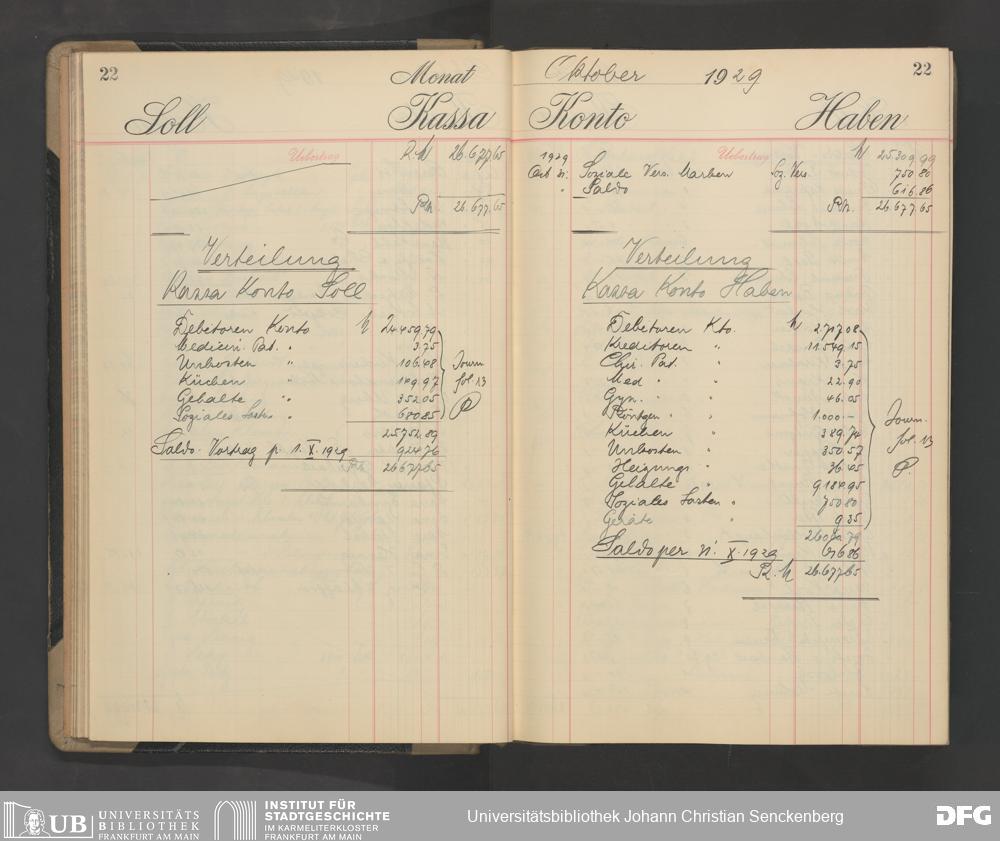 22
Monat
Soll Kassa
Uebertrag R.M 26.677,65
RM. 26.677.65
Verteilung
Kassa Konto Soll
Debitoren Konto M 24459,79
Medicin. Pat. " 3.75
Unkosten " 106.48
Küchen " 149.97
Gehälter " 352.05
Soziales Lasten " 680.85
Journ.
fol. 13
25752.89
Saldo-Vortrag p. 1. X. 1929 924.76
RM 26677.65
Oktober 1929 22
Konto Haben
Uebertrag M 25.309,99
1929
Okt 31. Soziale Vers. Marken Soz. Vers. 750.80
" Saldo 616.86
RM. 26.677.65
Verteilung
Kassa Konto Haben
Debitoren Kto. M 2717.08
Kreditoren " 11.549.15
Chir. Pat. " 3.75
Med " " 22.90
Gyn. " " 46.05
Röntgen " " 1.000.-
Küchen " 389.74
Unkosten " 350.57
Heizungs " 36.45
Gehälte " 9184.95
Soziales Lasten " 750.80
Geräte " 9.35
Journ.
fol. 13
26060.79
Saldo per 31. X. 1929 616.86
R.M 26.677.65
UB UNIVERSITÄTS
BIBLIOTHEK
FRANKFURT AM MAIN
INSTITUT FÜR
STADTGESCHICHTE
IM KARMELITERKLOSTER
FRANKFURT AM MAIN
Universitätsbibliothek Johann Christian Senckenberg
DFG